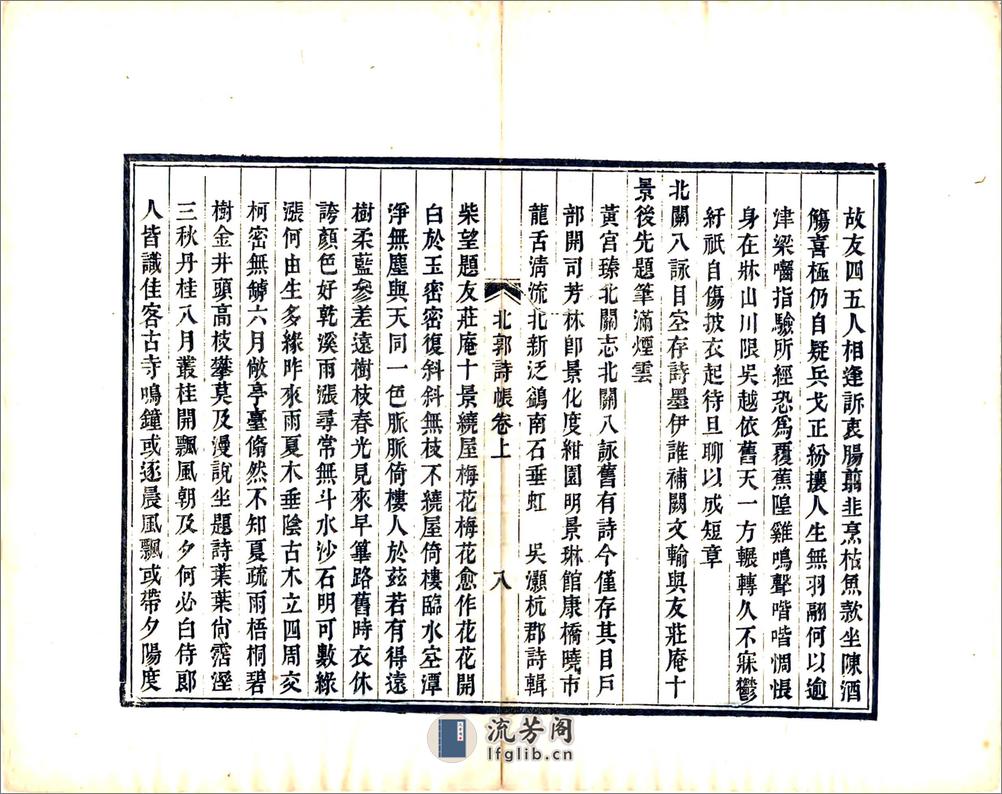 故友四五人相逢訴衷腸翦韭烹枯魚款坐陳酒
觴喜極仍自疑兵戈正紛攘人生無羽翮何以逾
津梁嚙指驗所經恐爲覆蕉隍雞鳴聲喈喈惆悵
身在牀山川限吳越依舊天一方輾轉久不寐鬱
紆祇自傷披衣起待旦聊以成短章
北關八詠目空存詩墨伊誰補闕文輸與友莊庵十
景後先題筆滿煙雲
黃宮臻北關志北關八詠舊有詩今僅存其目戶
部開司芳林卽景化度紺園明景琳館康橋曉市
龍舌淸流北新泛鷁南石垂虹　吳灝杭郡詩輯
北郭詩帳卷上　八
柴望題友莊庵十景繞屋梅花梅花愈作花花開
白於玉密密復斜斜無枝不繞屋倚樓臨水空潭
淨無塵與天同一色脈脈倚樓人於兹若有得遠
樹柔藍參差遠樹枝春光見來早篳路舊時衣休
誇顏色好乾溪雨漲尋常無斗水沙石明可數綠
漲何由生多緣昨來雨夏木垂陰古木立四周交
柯密無罅六月敞亭臺翛然不知夏疏雨梧桐碧
樹金井頭高枝攀莫及漫說坐題詩葉葉尙霑溼
三秋丹桂八月叢桂開飄風朝及夕何必白侍郞
人皆識佳客古寺鳴鐘或逐晨風飄或帶夕陽度
流芳阁
lfglib.cn